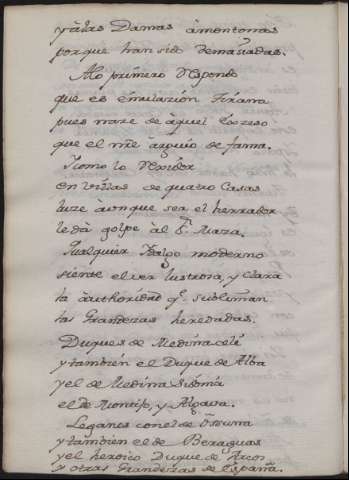 y à las Damas àmontonas
porque han sido demasiadas.
Alo primero Respondo
que es emulazion tirana
pues naze de àquel Exzeso
que el mũ àrguio de fama.
Y como lo
en villas de quatro Casas
luze àonque ser el herrador
le dà golpe àl S.r Maza.
Qualquier Hidalgo moderno
siente el ver lustrosa, y clara
la àuthoridad q.e subliman
las Grandezas heredadas.
Duques de Medinaceli
y tambien el Duque de Alba
y el de Medina Sidonia
el de Montijo, y Algava.
Leganes con el de Osuna
y tambien el de Beraguas
y el heroico Duque de Arcos
y otras Grandezas de España.